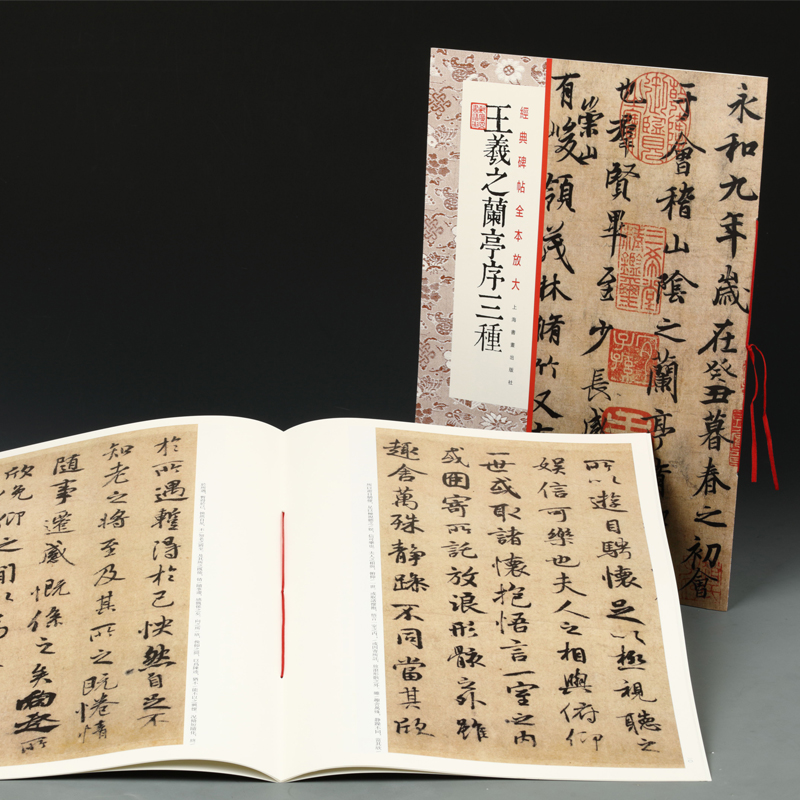 經典碑帖全本放大
王羲之蘭亭序三種
上海書畫出版社
永和九年歲在癸丑暮春之初會
于會稽山陰之蘭亭
也羣賢畢至少長咸
有崇山峻領茂林脩竹又
所以遊目騁懷足以極視聽之
娛信可樂也夫人之相與俯仰
一世或取諸懷抱悟言一室之內
或因寄所託放浪形骸之外雖
趣舍萬殊靜躁不同當其欣
於所遇蹔得於己怏然自足不
知老之將至及其所之既惓情
隨事遷感慨係之矣向之所
欣俛仰之間以為